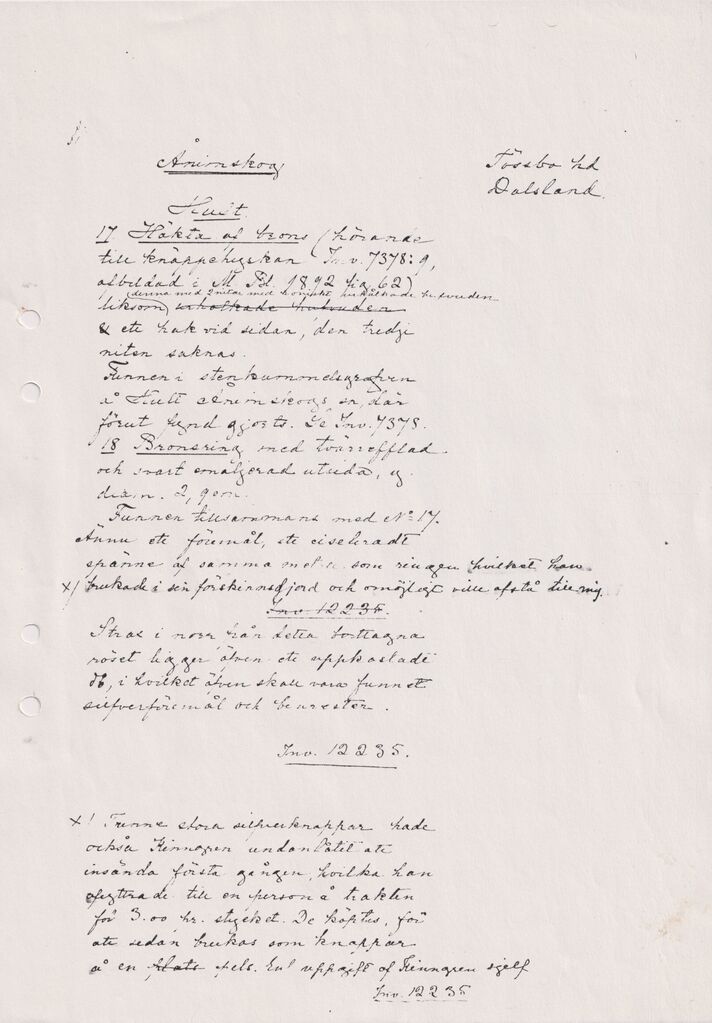 Ånimskog
Tössbo hd
Dalsland.
Hult.
17 Häkta af brons (hörande
till knäppehyskan Inv. 7378:9,
afbildad i M. Bl. 1892 fig 62)
(denna med 2 nitar med koniskt urhålkade hufvuden
liksom) urholkade hufvuden
& ett hak vid sidan, den tredje
niten saknas.
Funnen i stenkummelsgrafven
å Hult Ånimskogs sn, där
förut fynd gjorts. Se Inv. 7378.
18 Bronsring med tvärrefflad
och svart emaljerad utsida, y
diam. 2,9 cm.
Funnen tillsammans med No 17.
Ännu ett föremål, ett ciseleradt
spänne af samma metall som ringen hvilket han
x) brukade i sin förskinnsgjord och omöjligt ville afstå till mig.
Inv. 12235.
Strax i norr från detta borttagna
röset ligger äfven ett uppkastadt
d:o, i hvilket äfven skall vara funnet
silfverföremål och benrester.
Inv. 12235.
x) Trenne stora silfverknappar hade
också Kinnagren undanlåtit att
insända första gången, hvilka han
afyttrade till en person å trakten
för 3.00 kr. stycket. De köptes, för
att sedan brukas som knappar
å en plats pels. Enl uppgift af Kinngren sjelf
Inv. 12235